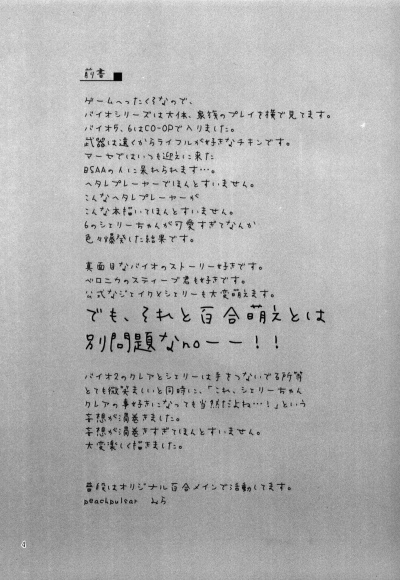 前書
ゲームへったくそなので、
バイオシリーズは大体、家族のプレイを横で見てます。
バイオ5、6はCO-OPで入りました。
武器は遠くからライフルが好きなチキンです。
マーセではいつも迎えに来た
BSAAの人に呆れられます…。
ヘタレプレーヤーでほんとすいません。
こんなヘタレプレーヤーが
こんな本描いてほんとすいません。
6のシェリーちゃんが可愛すぎてなんか
色々爆発した結果です。
真面目なバイオのストーリー好きです。
ベロニカのスティーブ君も好きです。
公式なジェイク×シェリーも大変萌えます。
でも、それと百合萌えとは
別問題なnoーー!!
バイオ2のクレアとシェリーは手をつないでる所等
とても微笑ましいと同時に、「これ、シェリーちゃん
クレアの事好きになっても当然だよね…!」という
妄想が渦巻きました。
妄想が渦巻きすぎてほんとすいません。
大変楽しく描きました。
普段はオリジナル百合メインで活動してます。
peachpulsar みら
4